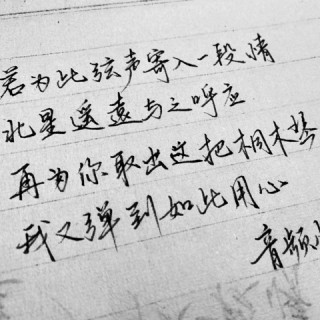 若为此弦声寄入一段情
北星遥遠与之呼应
再为你取出这把桐木琴
我又弹到如此用心
音频